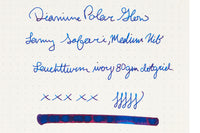 Diamine Polar Glow
Lamy Safari, Medium Nib
Leuchtturm ivory 80gsm dotgrid
x x x x x